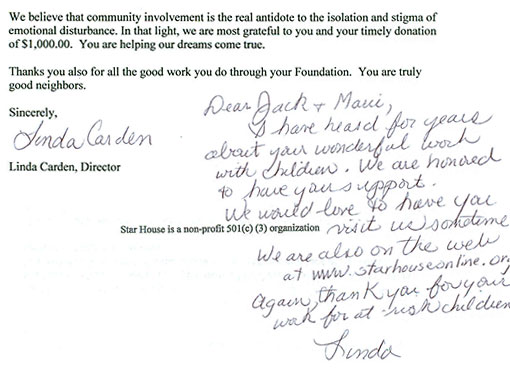 We believe that community involvement is the real antidote to the isolation and stigma of
emotional disturbance. In that light, we are most grateful to you and your timely donation
of $1,000.00. You are helping our dreams come true.
Thanks you also for all the good work you do through your Foundation. You are truly
good neighbors.
Sincerely,
Linda Carden
Linda Carden, Director
Star House is a non-profit 501(c) (3) organization
Dear Jack + Maui,
I have heard for years
about your wonderful work
with children. We are honored
to have your support.
We would love to have you
visit us sometime
We are also on the web
at www.starhouseonline.org
Again, thank you for your
work for at risk children
Linda